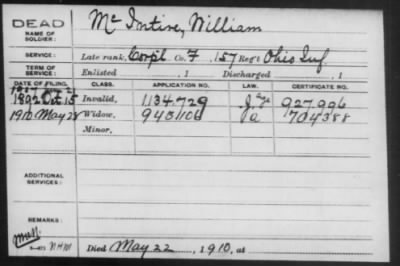 DEAD
NAME OF SOLDIER: Mc Intire, William
SERVICE: Late rank, Corp'l Co. F, 157 Reg't Ohio Inf.
TERM OF SERVICE: Enlisted , 1 Discharged , 1
DATE OF FILING. CLASS. APPLICATION NO. LAW. CERTIFICATE NO.
1892 Oct 15 Invalid, 1134.729 927.996
1910 May 28 Widow, 704388
Minor,
ADDITIONAL SERVICES:
REMARKS:
Died May 22, 1910, at